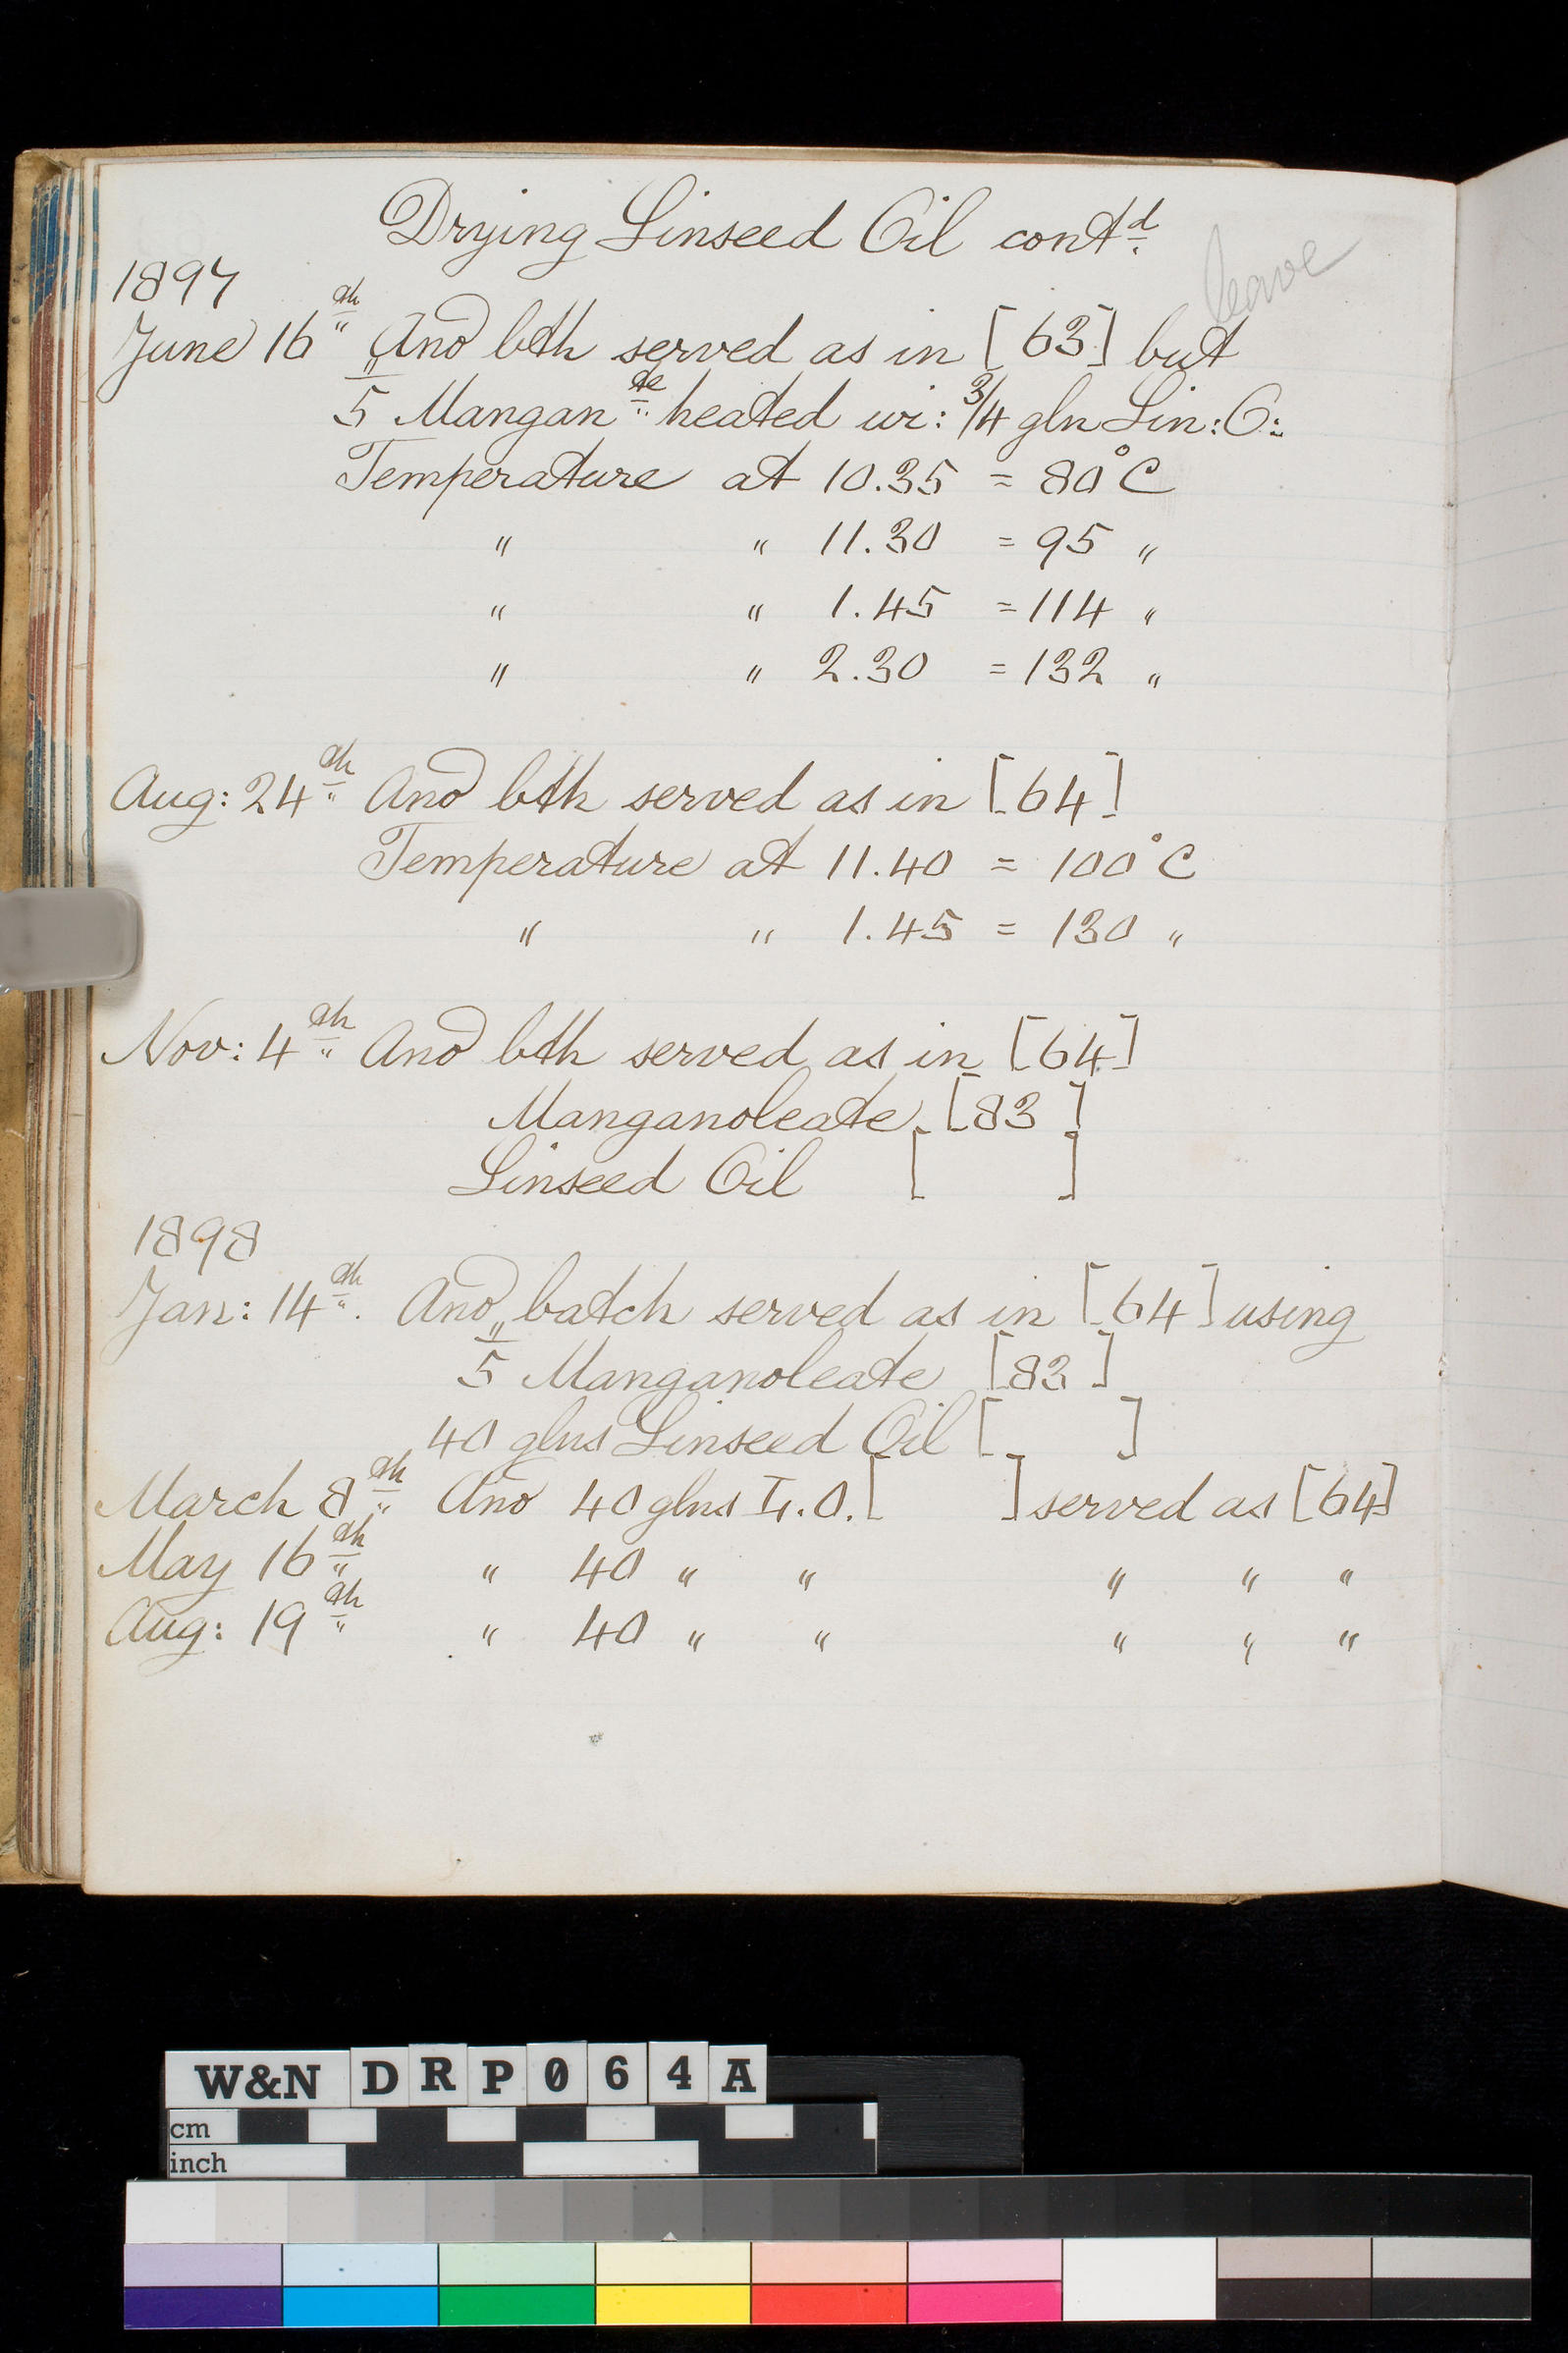 Drying Linseed Oil contd
leave
1897
June 16th Ano bth served as in [63] but
5 Mangante heated wi: 3/4 gln Lin: O:
Temperature at 10.35 = 80°C
" " 11.30 = 95 "
" " 1.45 = 114 "
" " 2.30 = 132 "
Aug: 24th Ano bth served as in [64]
Temperature at 11.40 = 100°C
" " 1.45 = 130 "
Nov: 4th Ano bth served as in [64]
Manganoleate [83]
Linseed Oil [ ]
1898
Jan: 14th. Ano batch served as in [64] using
5" Manganoleate [83]
40 glns Linseed Oil [ ]
March 8th Ano 40 glns L.O. [ ] served as [64]
May 16th " 40 " " " " "
Aug: 19th " 40 " " " " "
W&N DRP064A
cm
inch